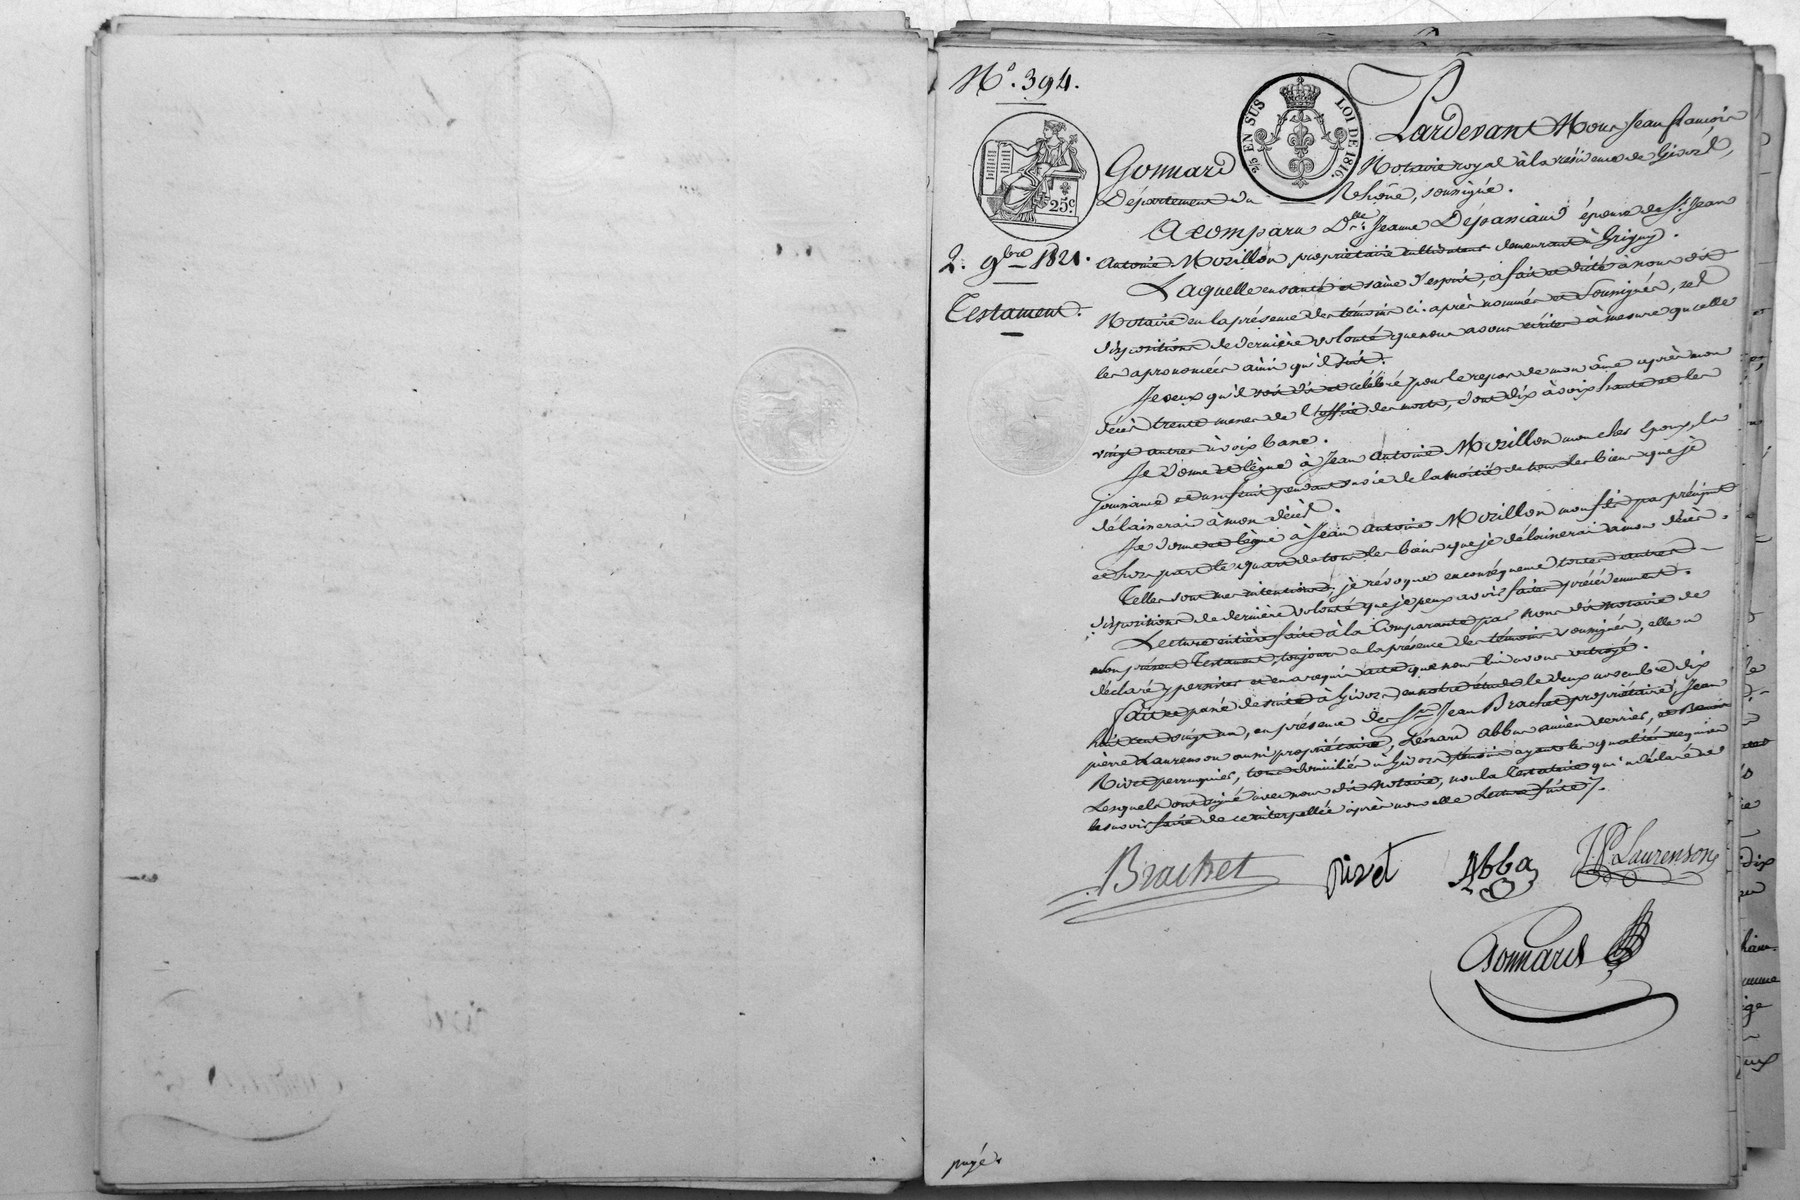 N.° 394.
2/5 EN SUS LOI DE 1816.
25.c
2. 9bre 1821.
Testament.
Pardevant Nous Jean françois
Gonnard Notaire royal à la résidence de Givors,
Département du Rhône, soussigné.
A comparu D.lle Jeanne épouse de Sr. Jean
Antoine Morillon propriétaire cultivateur demeurant à Grigny.
Laquelle en santé et saine d'esprit, a fait et dicté à nous dit
Notaire en la présence des témoins ci-après nommés et soussignés, ses
dispositions de dernière volonté que nous avons écrites à mesure qu'elle
les a prononcées ainsi qu'il suit.
Je veux qu'il soit dit et célébré pour le repos de mon âme après mon
décès trente messes de l'office des morts, dont dix à voix haute et les
vingt autres à voix basse.
Je donne et lègue à Jean Antoine Morillon mon cher époux, la
jouissance et usufruit pendant sa vie de la moitié de tous les biens que je
délaisserai à mon décès.
Je donne et lègue à Jean Antoine Morillon mon fils par préciput
et hors part le quart de tous les biens que je délaisserai à mon décès.
Telles sont mes intentions, je révoque en conséquence toutes autres
dispositions de dernière volonté que je peux avoir faites précédemment.
Lecture entière faite à la Comparante par nous dit notaire de
son présent Testament, toujours en la présence des témoins soussignés, elle a
déclaré y persister et en a requis acte que nous lui avons octroyé.
Fait et passé de suite à Givors en notre étude le deux novembre dix
huit cent vingt un, en présence de Srs. Jean Brachet propriétaire, Jean
pierre Laurenson aussi propriétaire, Léonard Abba ancien verrier, et
Rivet perruquier, tous domiciliés à Givors témoins ayant les qualités requises
Lesquels ont signé avec nous dit Notaire, non la Testatrice qui a déclaré ne
le savoir faire de ce interpellée après nouvelle Lecture faite.
Brachet rivet Abba J.P. Laurenson
Gonnard